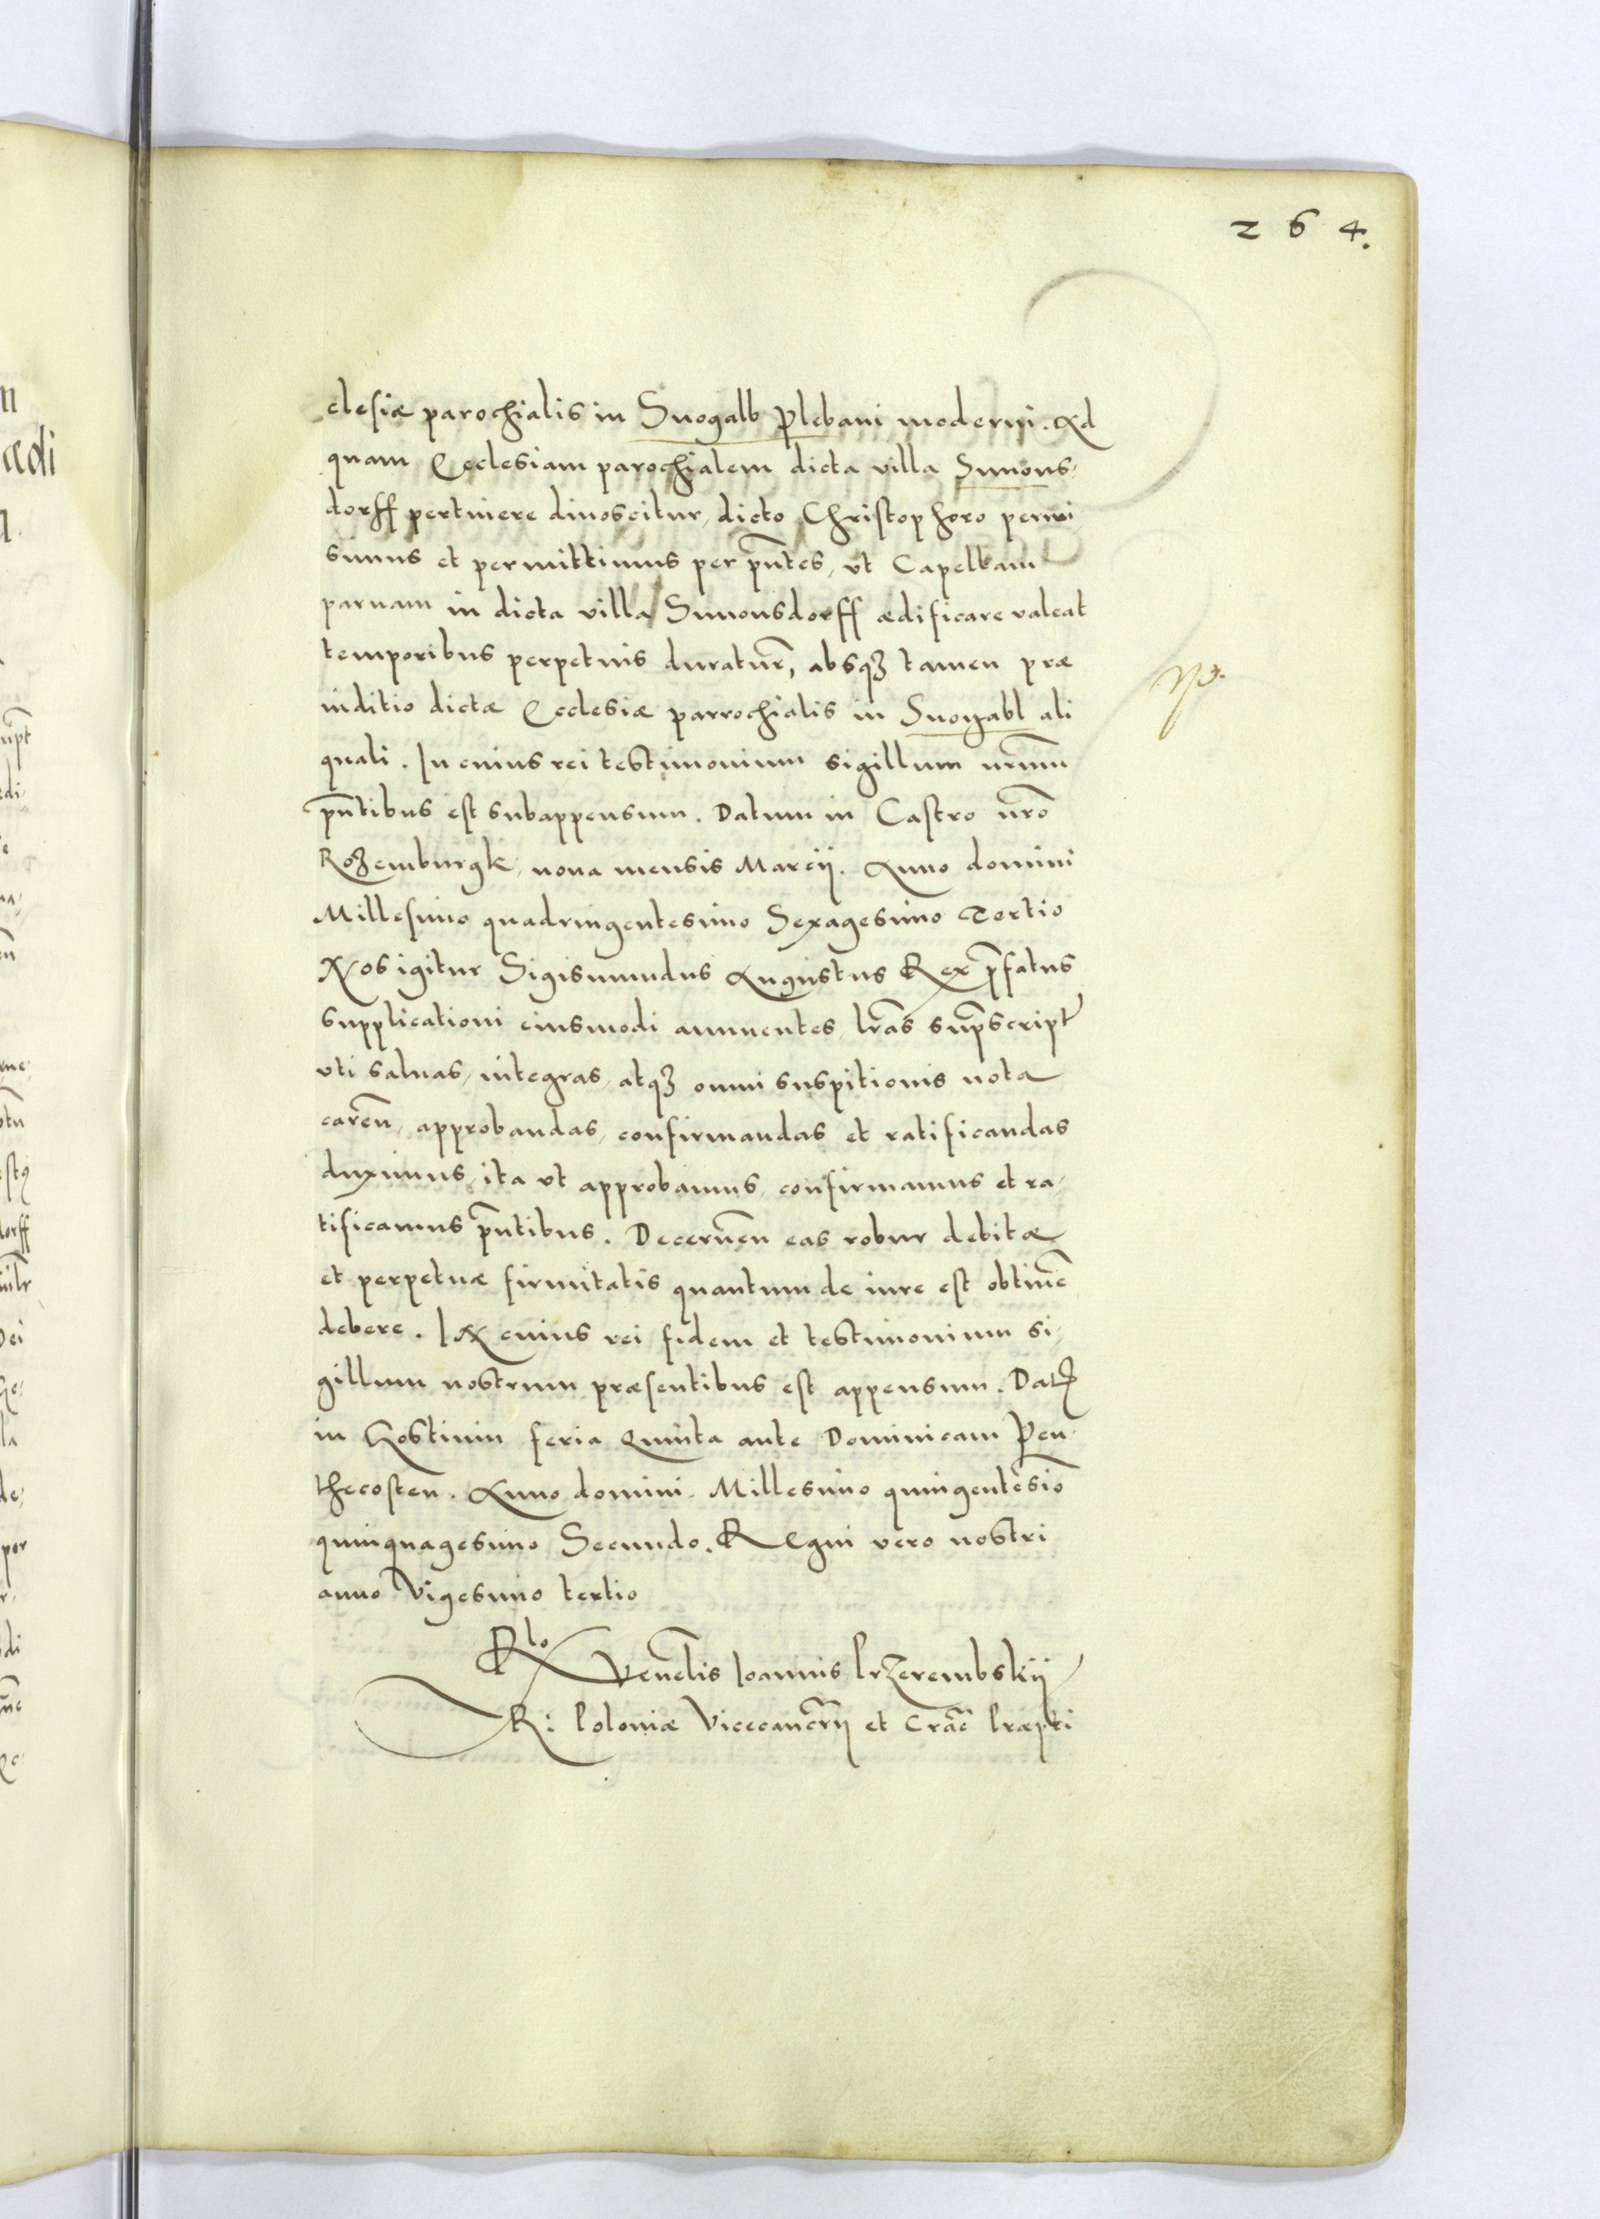 264.
clesiæ parochialis in Snogalb Plebani moderni. Ad
quam Ecclesiam parochialem dicta villa Simons-
dorff pertinere dinoscitur, dicto Christophoro permi
simus et permittimus per pñtes, vt Capellam
paruam in dicta villa Simonsdorff ædificare valeat
temporibus perpetuis duratur̃, absqȝ tamen præ
iuditio dictæ Ecclesiæ parrochialis in Snogabl ali
quali. In cuius rei testimonium sigillum nr̃um
pñtibus est subappensum. Datum in Castro nr̃o
Rozemburgk, nona mensis Marcij. Anno domini
Millesimo quadringentesimo Sexagesimo Tertio
Nos igitur Sigismundus Augustus Rex p̃fatus
supplicationi eiusmodi annuentes, lr̃as sup̃script̃
vti saluas, integras, atqȝ omni suspitionis nota
careñ, approbandas, confirmandas et ratificandas
duximus, ita vt approbamus, confirmamus et ra-
tificamus pñtibus. Decerneñ eas robur debitæ
et perpetuæ firmitatis quantum de iure est obtinẽ
debere. IN cuius rei fidem et testimonium si-
gillum nostrum præsentibus est appensum. Dat̃
in Gostinin feria Quinta ante Dominicam Pen-
thecosten. Anno domini. Millesimo quingentesĩo
quinquagesimo Secundo. REgni vero nostri
anno Vigesimo tertio
Rlo
Veneñlis Ioannis Przerembskij
R: Poloniæ Vicecancr̃ij et Crac̃ Præpti